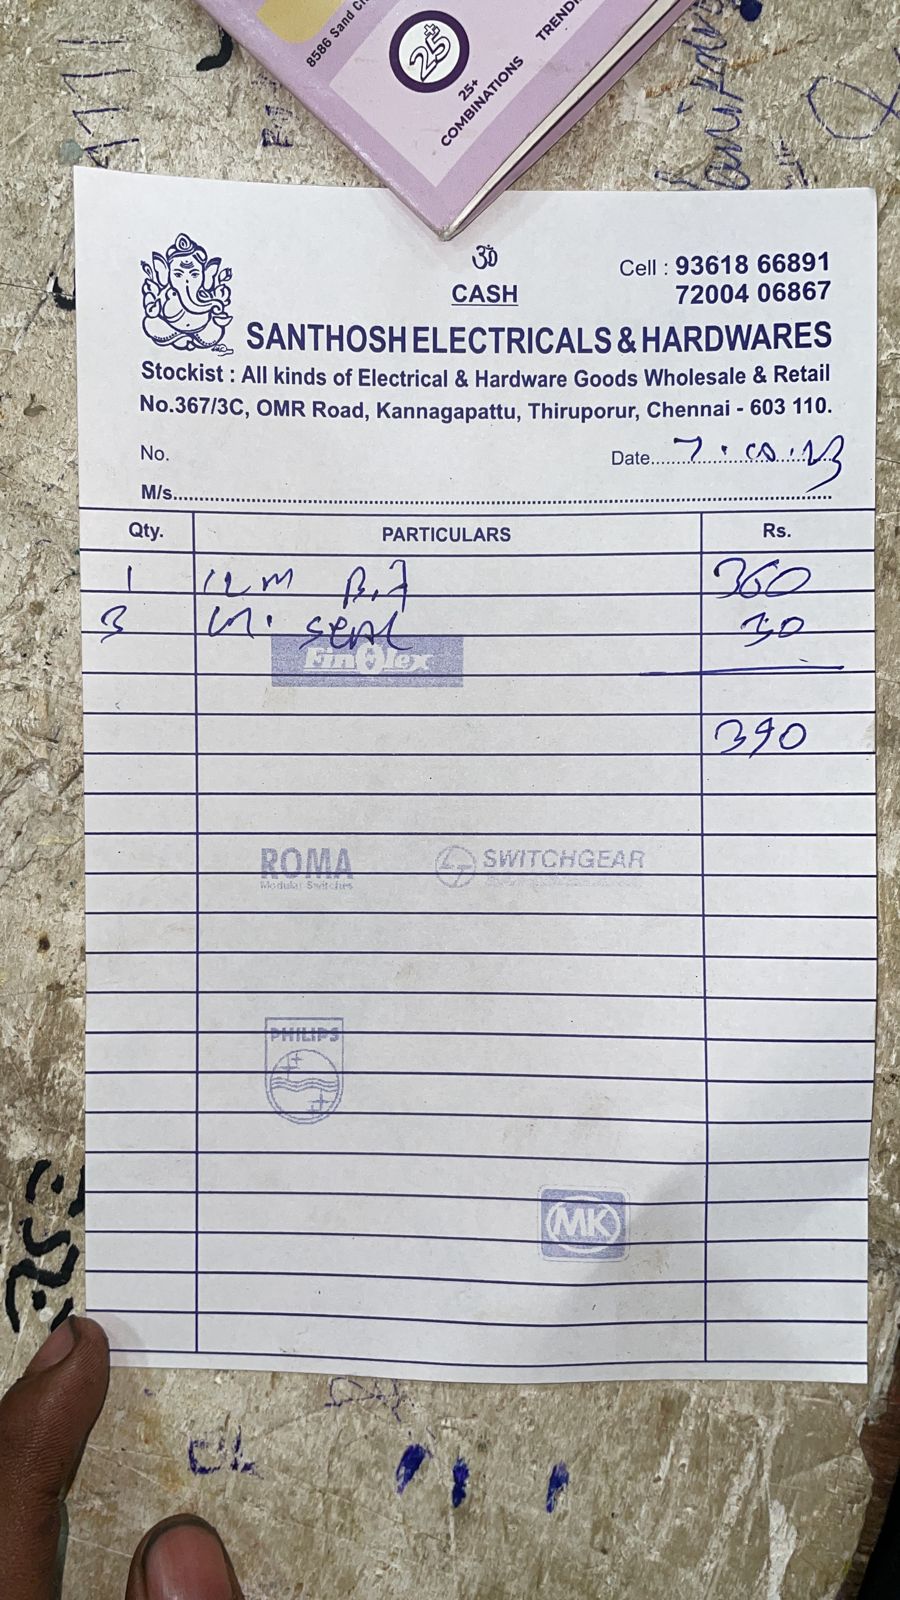 8586 Sand
25+
25+
COMBINATIONS
ॐ
CASH
Cell : 93618 66891
72004 06867
SANTHOSH ELECTRICALS & HARDWARES
Stockist : All kinds of Electrical & Hardware Goods Wholesale & Retail
No.367/3C, OMR Road, Kannagapattu, Thiruporur, Chennai - 603 110.
No.
Date
M/s
Qty. PARTICULARS Rs.
1 360
3 M. Seal 30
Finolex
390
ROMA
Modular Switches
SWITCHGEAR
PHILIPS
MK